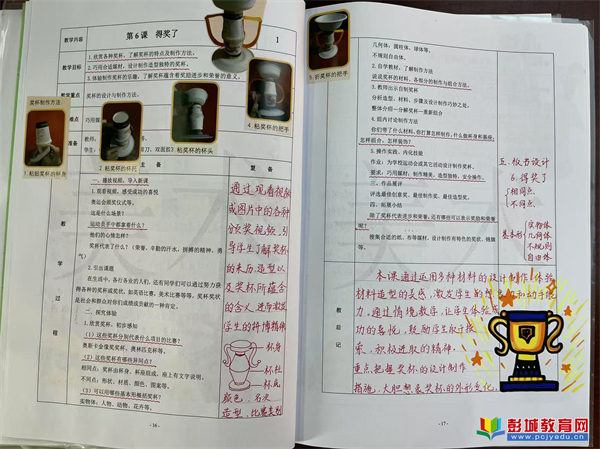 教学内容
第6课 得奖了
1
1.欣赏各种奖杯,了解奖杯的特点及制作方法。
教学目标
2.巧用合适媒材,设计制作造型独特的奖杯。
3.体验制作奖杯的乐趣,了解奖杯蕴含着奖励进步和荣誉的意义。
教学重点
奖杯的设计与制作方法。
难点
准备
教师:
学生:
刀、双面胶
奖杯制作方法:
1.粘贴奖杯的杯身
2.粘奖杯的杯托
3.粘奖杯的杯头
4.粘奖杯的把手
5.折奖杯的把手
主 备
复 备
教学过程
一、播放视频,导入新课
1.观看视频,感受成功的喜悦
奥运会颁奖仪式等。
这是什么场景?
运动员手中都拿着什么?
他们的心情怎样?
奖杯代表了什么?(荣誉、辛勤的汗水、拼搏的精神、勇气)
2.引出课题
在生活中,各行各业的人们,还有同学们可以通过努力获
得各种的奖杯或奖状,如英语比赛、美术比赛等等。奖杯奖状
是社会和群众对你们成绩或贡献的一种肯定。
二、探究体验
1.欣赏奖杯,初步感知
(1)这些奖杯分别代表什么项目的比赛?
奥斯卡金像奖奖杯、奥林匹克杯等。
(2)这些奖杯有哪些异同点?
相同点:奖杯由杯身、杯座组成,座上有文字说明。
不同点:形状、材质、颜色、图案等。
(3)可以用哪些基本形概括奖杯?
实物体、人物、动物、花卉等。
通过观看视频
或图片中的各种
颁奖视频,引
导学生了解奖杯
的来历、造型以
及奖杯所蕴含
的含义,进而激发
学生的拼搏精神
杯身
杯柱
杯底
颜色,名次
造型,比赛类别
- 16 -
几何体,圆柱体、球体等。
不规则自由体。
2.自学教材,了解制作方法
说说奖杯的材料、各部分的制作与组合方法。
3.教师出示自制奖杯
分析造型、材料、步骤及设计制作巧妙之处。
整体介绍一分解奖杯一重新组合
4.组内讨论制作方法
你们带了什么材料,你打算怎样制作;什么做杯身和基座,
怎样组合,怎样装饰?
5.操作实践,内化技能
作业:为学校运动会或其它活动设计制作奖杯。
要求:巧用媒材、制作精美、造型独特、安全操作。
三、作品展评
评选最佳创意奖、最佳制作奖、最佳造型奖。
四、拓展小结
除了奖杯代表进步和荣誉,还有哪些可以表示奖励和荣誉呢?
搜集合适的纸、布等媒材,设计制作有特色的奖状、锦旗等。
五.板书设计
6.得奖了
相同点
不同点
基本形
实物体
几何体
不规则
自由体
教后记
本课通过运用多种材料的设计制作,体验
材料造型的美感,激发学生的想
和动手能
力。通过情境教学,让学生体验成
功的喜悦,鼓励学生敢于探
索,积极进取的精神。
重点把握奖杯的设计制作
措施,大胆想象奖杯的外形变化。
- 17 -
彭城教育网
www.pcjyedu.cn